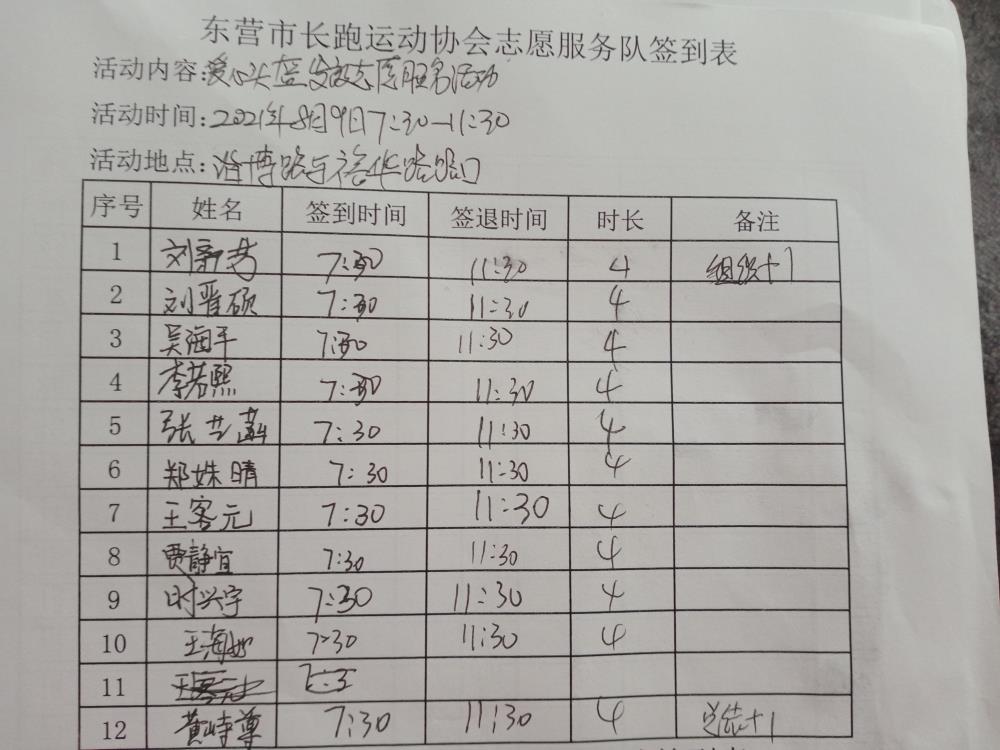 东营市长跑运动协会志愿服务队签到表
活动内容:爱心头盔发放志愿服务活动
活动时间:2021年8月9日7:30—11:30
活动地点:淄博路与裕华路路口
序号 姓名 签到时间 签退时间 时长 备注
1 刘新芳 7:30 11:30 4 组织+1
2 刘晋硕 7:30 11:30 4
3 吴海平 7:30 11:30 4
4 李若熙 7:30 11:30 4
5 张艺菡 7:30 11:30 4
6 郑姝晴 7:30 11:30 4
7 王客元 7:30 11:30 4
8 贾静宜 7:30 11:30 4
9 时兴宇 7:30 11:30 4
10 王海如 7:30 11:30 4
11
12 黄峙尊 7:30 11:30 4 总结+1